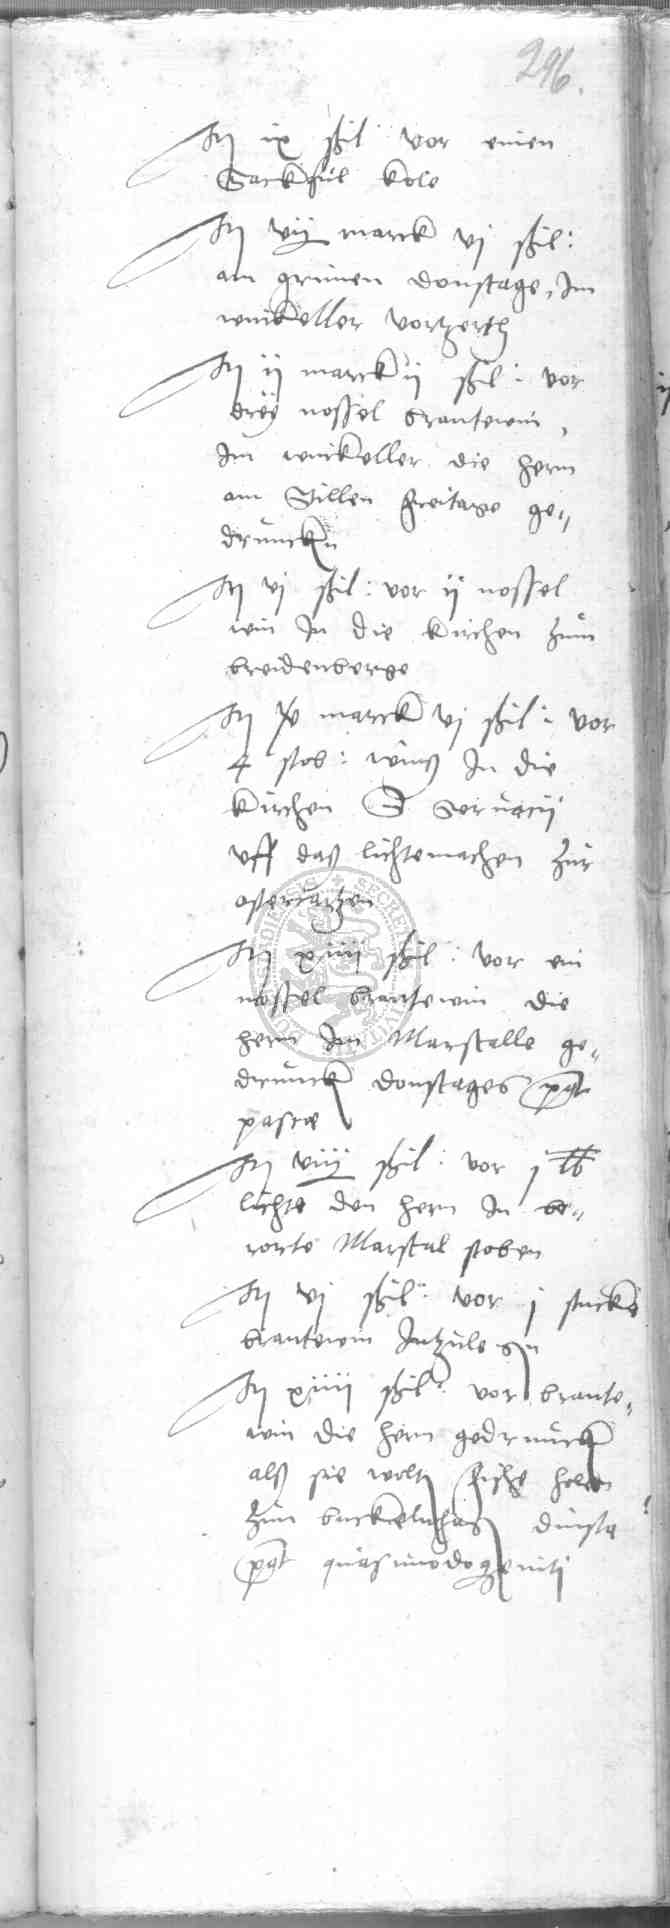 296.
It ix ßil vor einen
Sackfül kole
It vij marck vj ßil:
am grunen donstage, Im
winkeller vortzerth
It ij marck ij ßil: vor
dreÿ nossel brantewin,
Im winkeller die hern
am Stillen freitage ge„
druncken
It vj ßil: vor ij nossel
win In die kirchen zum
breidenberge
It xv marck vj ßil: vor
4 stob: wins In die
kirchen S Servacij
vff daß lichtemachen zur
ostercartzen
It xiiij ßil: vor ein
nossel brantewin die
hern Im Marstalle ge„
druncken donstages post
pasce
It viij ßil: vor j lb
lichte den hern In be„
rorte Marstal stoben
It vj ßil: vor j stucke
brantewin
It xiiij ßil: vor brante„
win die hern gedruncken
alß sie wolten fische holen
zum dinsta
post quasimodogeniti